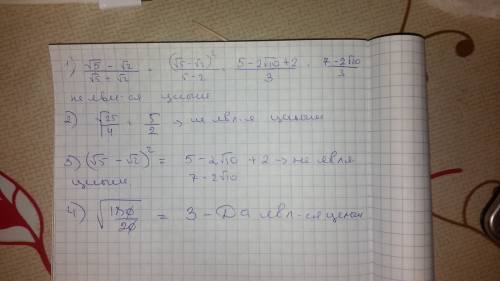 1) (√5 - √2)/(√5 + √2) = (√5-√2)²/(5-2) = (5-2√10+2)/3 = (7-2√10)/3
не явл-ся целым
2) √25/4 = 5/2 → не явл-я целым
3) (√5 - √2)² = 5 - 2√10 + 2 → не явля
целым 7 - 2√10
4) √(180/20) = 3 - Да явл-ся целым